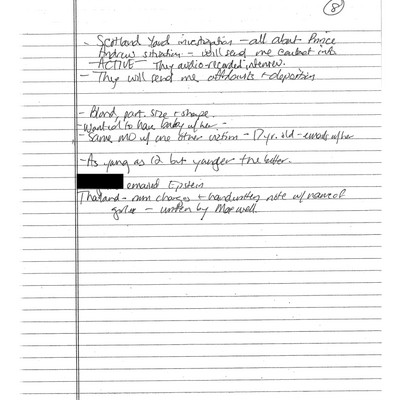 8
- Scotland Yard investigation - all about Prince
Andrew situation - will send me contact info
- ACTIVE - They audio-recorded interview.
- They will send me affidavits + deposition
- Blond, part. size + shape.
- Wanted to have baby w/ her. -
- Same MO w/ one other victim - 17 yr. old - emails w/ her
- As young as 12 but younger the better.
emailed Epstein
Thailand - charges + handwritten note w/ name of
girl - written by Maxwell.